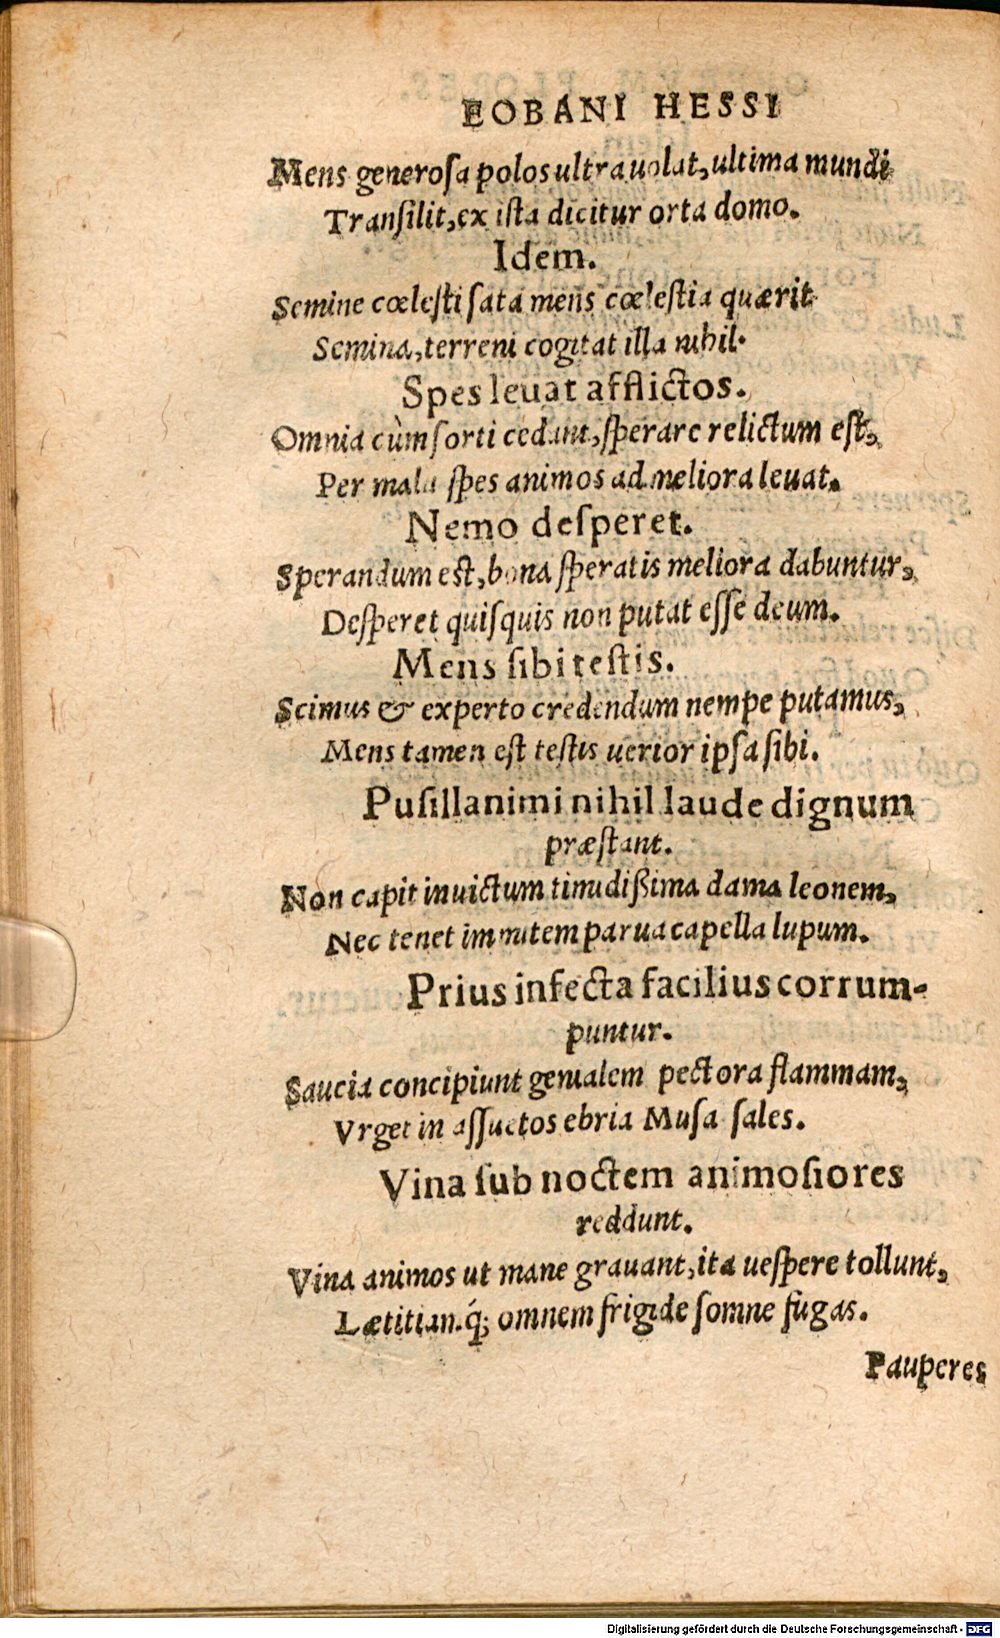 EOBANI HESSI
Mens generosa polos ultra uolat, ultima mundi
Transilit, ex ista dicitur orta domo.
Idem.
Semine cœlesti sata mens cœlestia quærit
Semina, terreni cogitat illa nihil.
Spes leuat afflictos.
Omnia cùm sorti cedant, sperare relictum est,
Per mala spes animos ad meliora leuat.
Nemo desperet.
Sperandum est, bona speratis meliora dabuntur,
Desperet quisquis non putat esse deum.
Mens sibi testis.
Scimus & experto credendum nempe putamus,
Mens tamen est testis uerior ipsa sibi.
Pusillanimi nihil laude dignum
præstant.
Non capit inuictum timidißima dama leonem,
Nec tenet immitem parua capella lupum.
Prius infecta facilius corrum-
puntur.
Saucia concipiunt genialem pectora flammam,
Vrget in assuetos ebria Musa sales.
Vina sub noctem animosiores
reddunt.
Vina animos ut mane grauant, ita uespere tollunt,
Lætitiam q́; omnem frigide somne fugas.
Pauperes
Digitalisierung gefördert durch die Deutsche Forschungsgemeinschaft - DFG